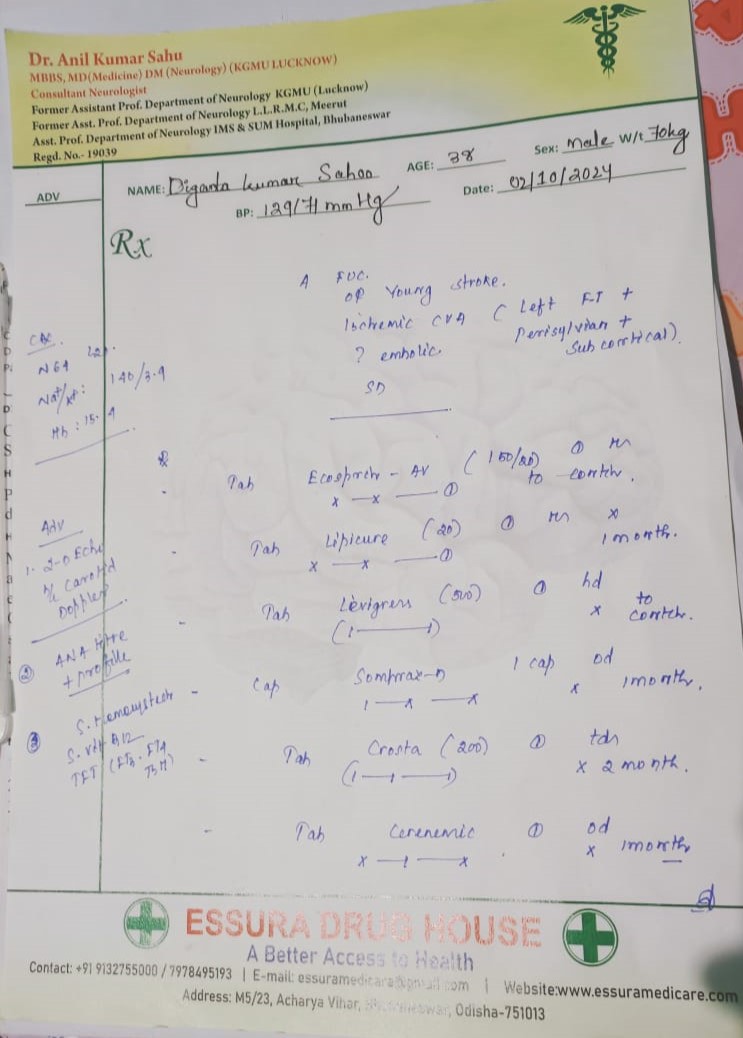 Dr. Anil Kumar Sahu
MBBS, MD(Medicine) DM (Neurology) (KGMU LUCKNOW)
Consultant Neurologist
Former Assistant Prof. Department of Neurology KGMU (Lucknow)
Former Asst. Prof. Department of Neurology L.L.R.M.C, Meerut
Asst. Prof. Department of Neurology IMS & SUM Hospital, Bhubaneswar
Regd. No.- 19039
ADV
NAME: Diganta Kumar Sahoo AGE: 38 Sex: Male W/t 70kg
BP: 129/71 mmHg Date: 02/10/2024
Rx
A FUC.
of Young stroke.
Ischemic CVA ( Left F-T +
Perisylvian +
Subcortical).
? embolic
CBC
N64 L21.
Na+/K+: 140/3.9
Hb: 15.9
Tab Ecosprin - AV (150/20) ① HS
to contin.
x — x — ①
Tab Lipicure (20) ① HS x
1 month.
x — x — ①
Tab (500) ① bd
x to contin.
(1 — 1)
Cap Sompraz-D 1 cap od
x 1 month.
1 — x — x
Tab (200) ① tds
x 2 month.
(1 — 1 — 1)
Tab Cerenemic ① od
x 1 month
x — 1 — x
Adv
1. 2-D Echo
B/L Carotid
Doppler
② ANA titre
+ profile
③ S. Homocystein
S. Vit B12
TFT (FT3. FT4
TSH)
ESSURA DRUG HOUSE
A Better Access to Health
Contact: +91 9132755000 / 7978495193 | E-mail: essuramedicare@gmail.com | Website:www.essuramedicare.com
Address: M5/23, Acharya Vihar, Bhubaneswar, Odisha-751013